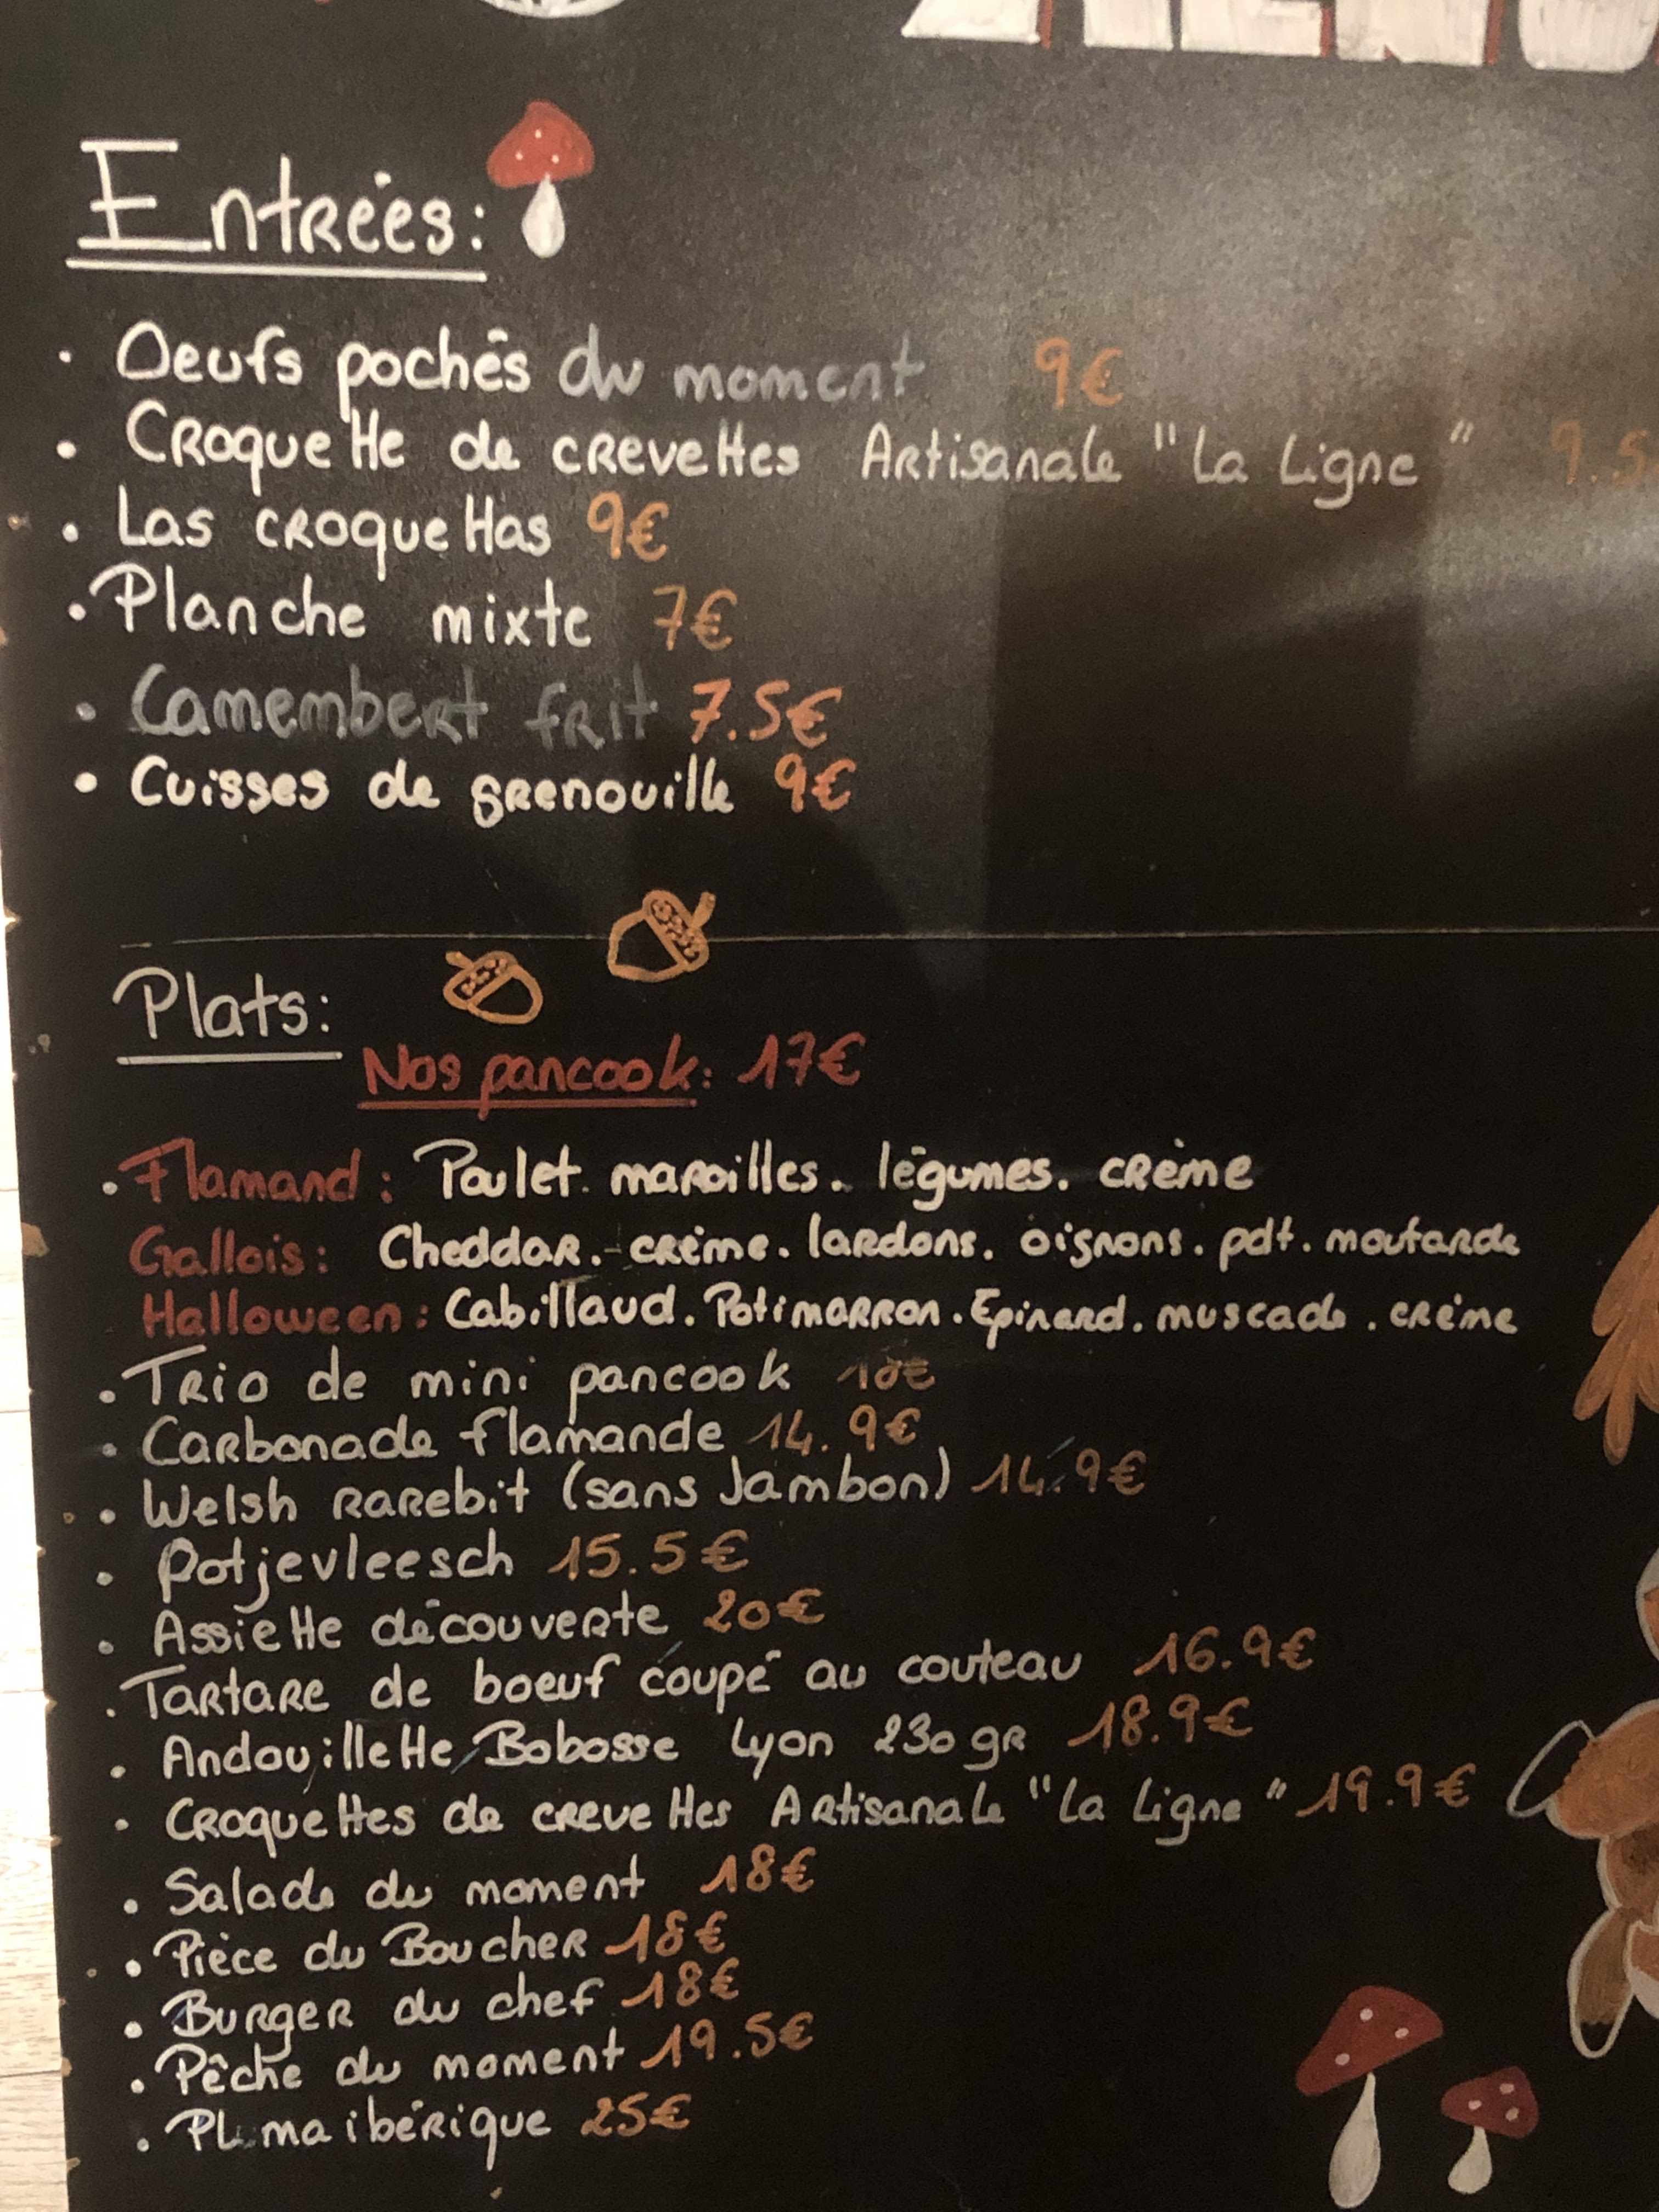 MENU
Entrées:
· Oeufs pochés du moment 9€
· Croquette de crevettes Artisanale "La Ligne" 9.5
· Las croquettas 9€
· Planche mixte 7€
· Camembert frit 7.5€
· Cuisses de grenouille 9€
Plats:
Nos pancook: 17€
· Flamand: Poulet. maroilles. légumes. crème
Gallois: Cheddar. crème. lardons. oignons. pdt. moutarde
Halloween: Cabillaud. Potimarron. Epinard. muscade. crème
· Trio de mini pancook
· Carbonade flamande 14.9€
· Welsh rarebit (sans Jambon) 14.9€
· Potjevleesch 15.5€
· Assiette découverte 20€
· Tartare de boeuf coupé au couteau 16.9€
· Andouillette Bobosse Lyon 230gr 18.9€
· Croquettes de crevettes Artisanale "La Ligne" 19.9€
· Salade du moment 18€
· Pièce du Boucher 18€
· Burger du chef 18€
· Pêche du moment 19.5€
· Pluma ibérique 25€